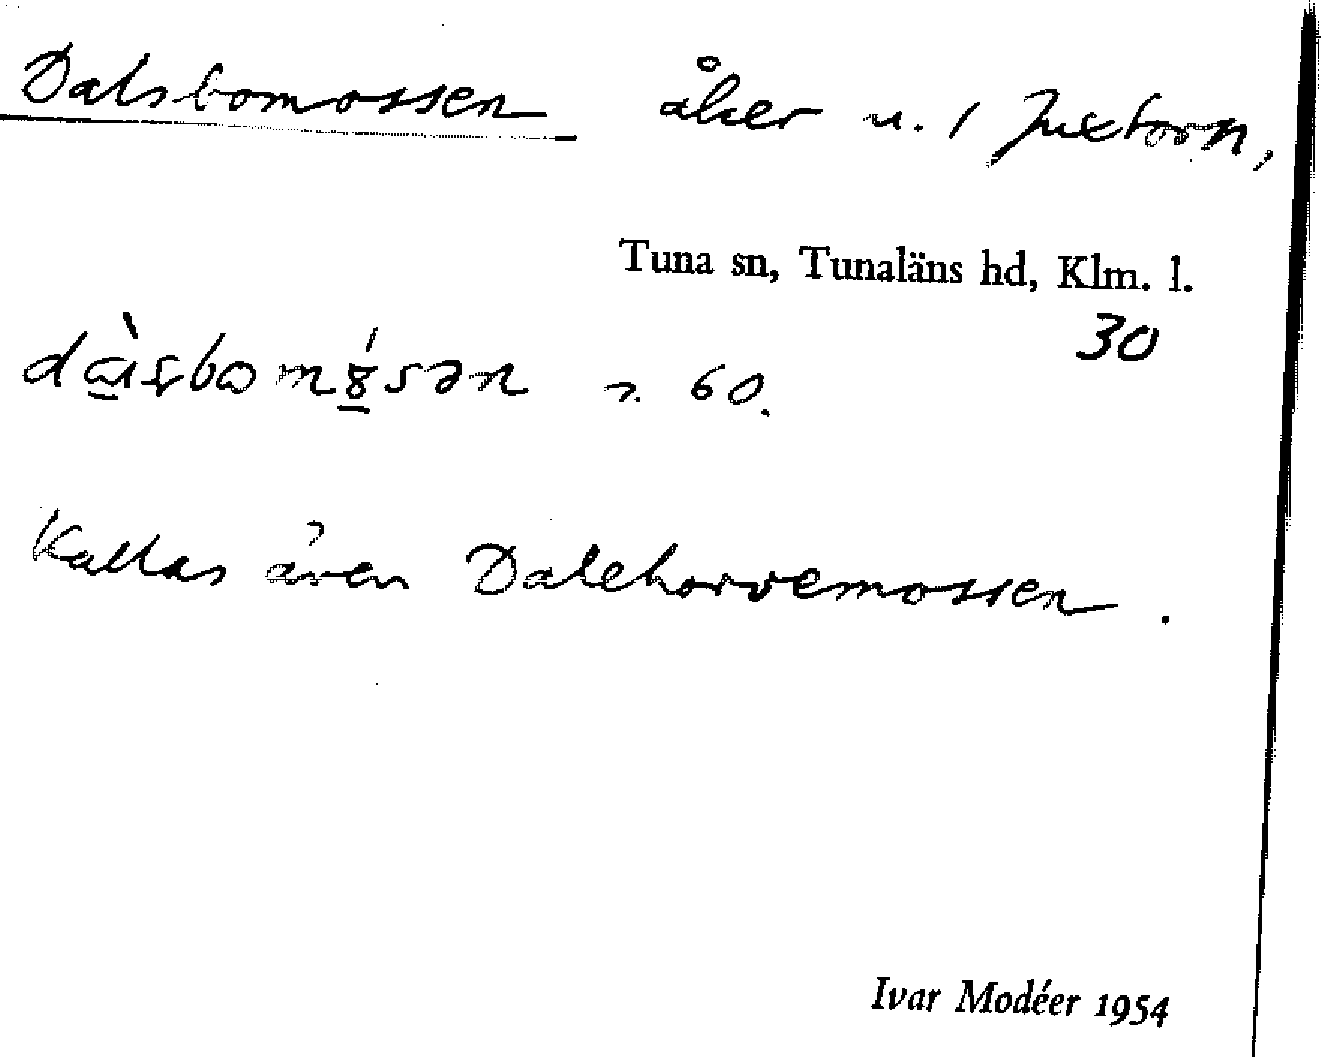 Dalsbomossen åker u. / Juxtorn,
Tuna sn, Tunaläns hd, Klm. l.
30
60.
Kallas även Dalehorvemossen.
Ivar Modéer 1954